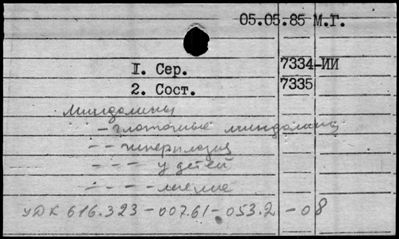 05.05.85 М.Г.
1. Сер. 7334-ИИ
2. Сост. 7335
Миндалины
- глоточные миндалины
- - гиперплазия
- - - у детей
- - - - лечение
УДК 616.323-007.61-053.2-08